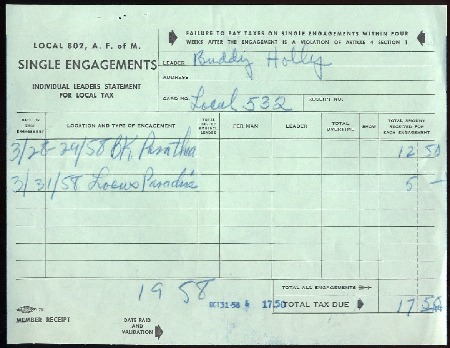 FAILURE TO PAY TAXES ON SINGLE ENGAGEMENTS WITHIN FOUR
WEEKS AFTER THE ENGAGEMENT IS A VIOLATION OF ARTICLE 4 SECTION 1
LOCAL 802, A. F. of M.
SINGLE ENGAGEMENTS
INDIVIDUAL LEADERS STATEMENT
FOR LOCAL TAX
LEADER Buddy Holly
ADDRESS
CARD NO. Local 532 RECEIPT NO.
DATE OF THIS ENGAGEMENT LOCATION AND TYPE OF ENGAGEMENT PER MAN LEADER TOTAL TOTAL AMOUNT RECEIVED FOR EACH ENGAGEMENT
3/28-29/58 BK. 12 50
3/31/58 Loews Paradise 5 —
1958
OCT 31-58 17.50
TOTAL ALL ENGAGEMENTS
TOTAL TAX DUE 17 50
MEMBER RECEIPT
DATE PAID
AND
VALIDATION